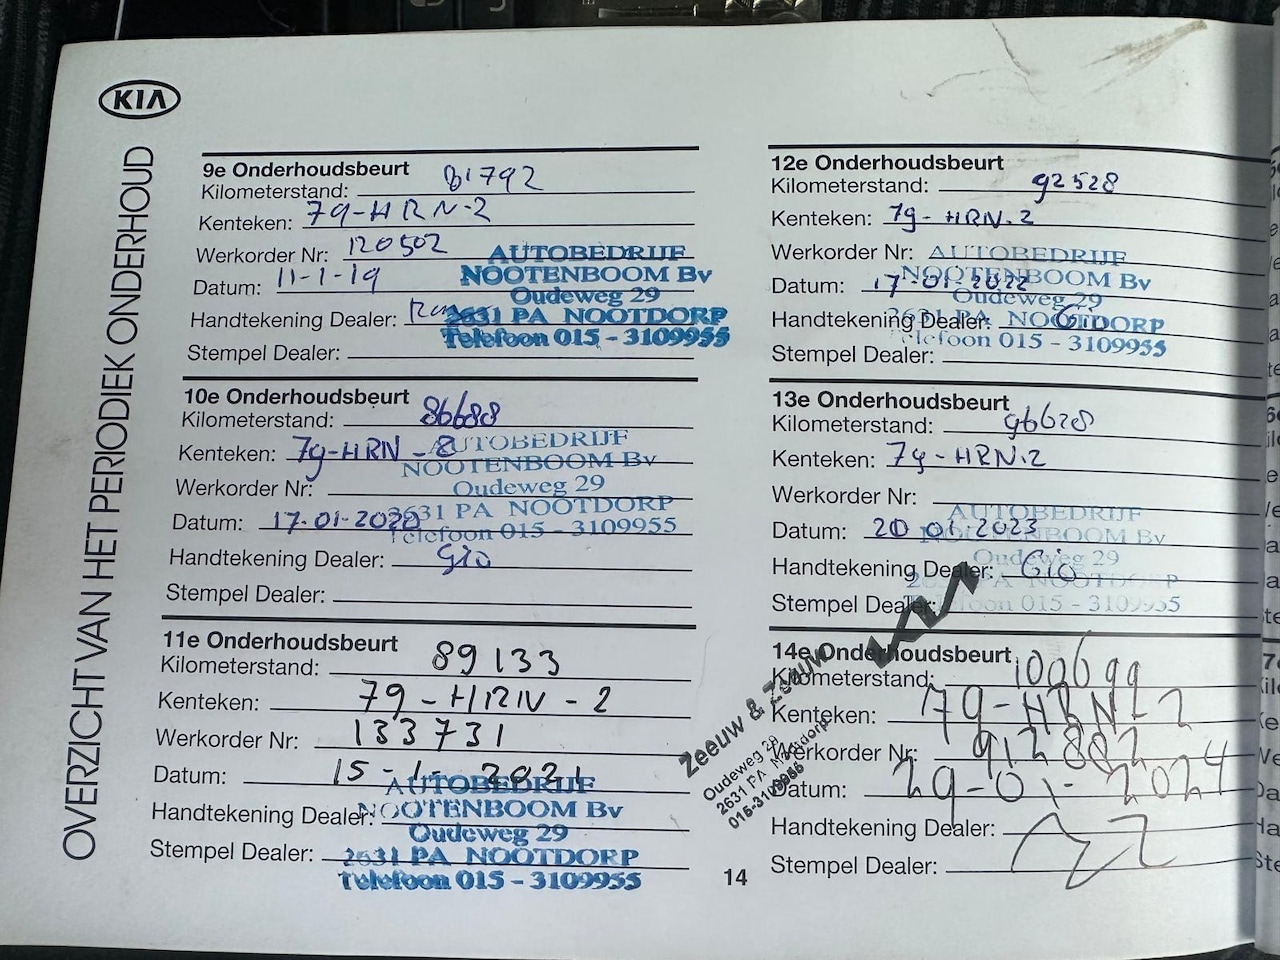 KIA
OVERZICHT VAN HET PERIODIEK ONDERHOUD
9e Onderhoudsbeurt
Kilometerstand: 81792
Kenteken: 79-HRN-2
Werkorder Nr: 120502
Datum: 11-1-19
Handtekening Dealer:
Stempel Dealer:
AUTOBEDRIJF
NOOTENBOOM Bv
Oudeweg 29
2631 PA NOOTDORP
Telefoon 015 - 3109955
10e Onderhoudsbeurt
Kilometerstand: 86688
Kenteken: 79-HRN-2
Werkorder Nr:
Datum: 17-01-2020
Handtekening Dealer: Gio
Stempel Dealer:
AUTOBEDRIJF
NOOTENBOOM Bv
Oudeweg 29
2631 PA NOOTDORP
Telefoon 015 - 3109955
11e Onderhoudsbeurt
Kilometerstand: 89133
Kenteken: 79-HRN-2
Werkorder Nr: 133731
Datum: 15-1-2021
Handtekening Dealer:
Stempel Dealer:
AUTOBEDRIJF
NOOTENBOOM Bv
Oudeweg 29
2631 PA NOOTDORP
Telefoon 015 - 3109955
12e Onderhoudsbeurt
Kilometerstand: 92528
Kenteken: 79-HRN-2
Werkorder Nr:
Datum: 17-01-2022
Handtekening Dealer: Gio
Stempel Dealer:
AUTOBEDRIJF
NOOTENBOOM Bv
Oudeweg 29
2631 PA NOOTDORP
Telefoon 015 - 3109955
13e Onderhoudsbeurt
Kilometerstand: 96628
Kenteken: 79-HRN-2
Werkorder Nr:
Datum: 20 01-2023
Handtekening Dealer: Gio
Stempel Dealer:
AUTOBEDRIJF
NOOTENBOOM Bv
Oudeweg 29
2631 PA NOOTDORP
Telefoon 015 - 3109955
14e Onderhoudsbeurt
Kilometerstand: 100699
Kenteken: 79-HRN-2
Werkorder Nr: 912802
Datum: 29-01-2024
Handtekening Dealer:
Stempel Dealer:
KIA
Zeeuw & Zeeuw
Oudeweg 29
2631 PA Nootdorp
015-3109955
14